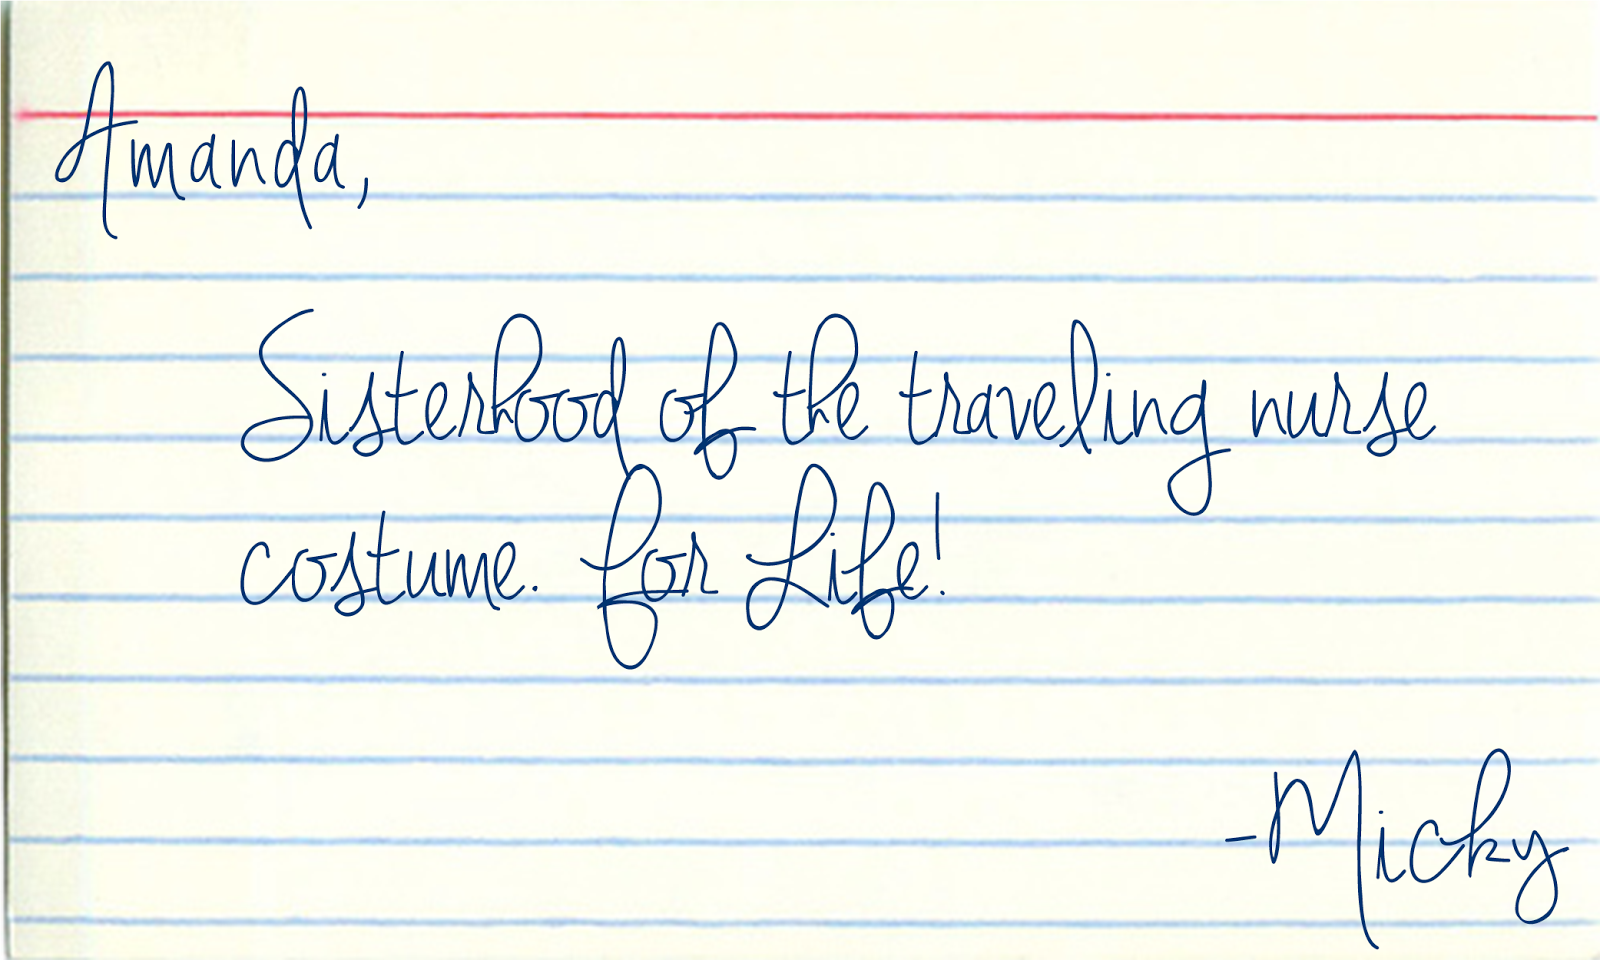 Amanda,
Sisterhood of the traveling nurse
costume. For Life!
-Micky